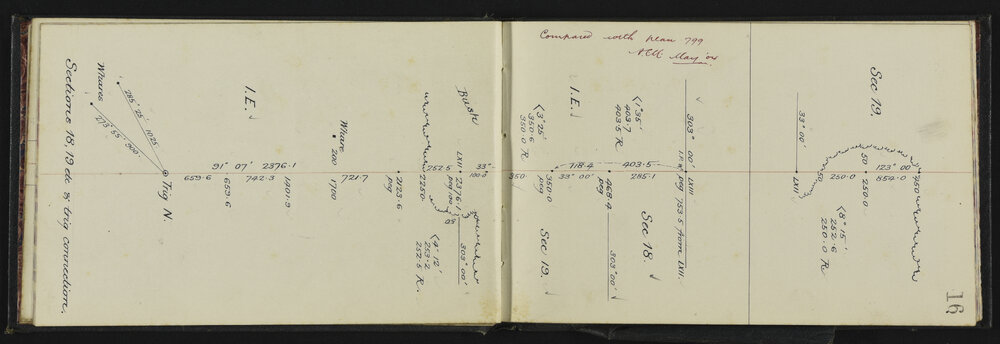 Sections 18, 19 etc & trig connection.
Whares
285° 25' 1025
273° 55' 900
Trig N.
I.E.
91° 07' 2376.1
659.6
659.6
742.3
1401.9
Whare
200
1700
721.7
2123.6
peg
2250
252.5
Bush
LXII
2376.1
peg
50
303° 00'
<4° 12'
253.2
252.5 R.
33°
100.0
Compared with plan 799
May '04
350.
<3° 25'
350.6
350.0 R
350.0
peg
Sec 19.
I.E.
718.4
33° 00'
<1° 35'
403.7
403.5 R
403.5
468.4
peg
303° 00'
285.1
Sec 18
303° 00'
I.P. &
LXIII
peg 753.5 from LXII.
33° 00'
LXII
50
250.0
50
250.0
<8° 15'
252.6
250.0 R
Sec 19.
123° 00'
854.0
850
16